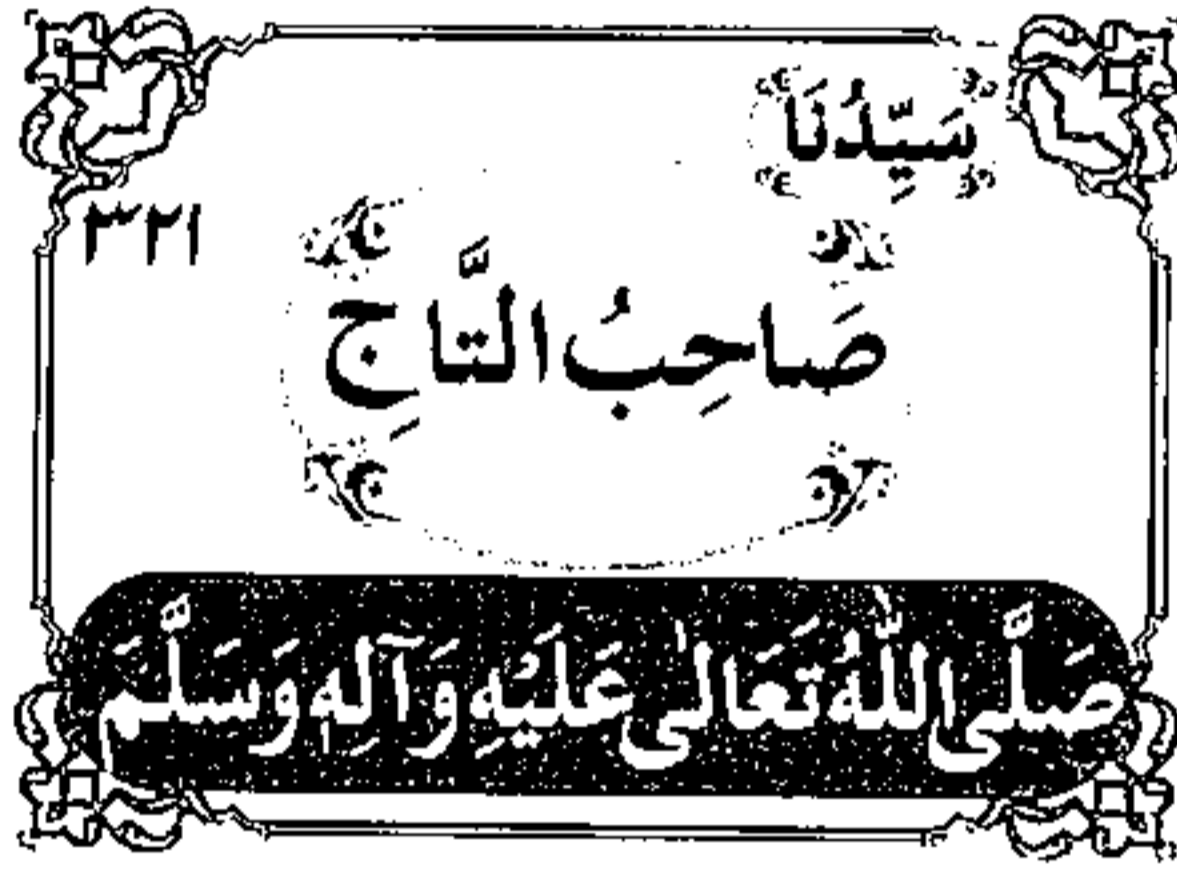 سَيِّدُنَا
٣٢١
صَاحِبُ التَّاجِ
صَلَّى اللّٰهُ تَعَالٰى عَلَيْهِ وَآلِهٖ وَسَلَّمَ